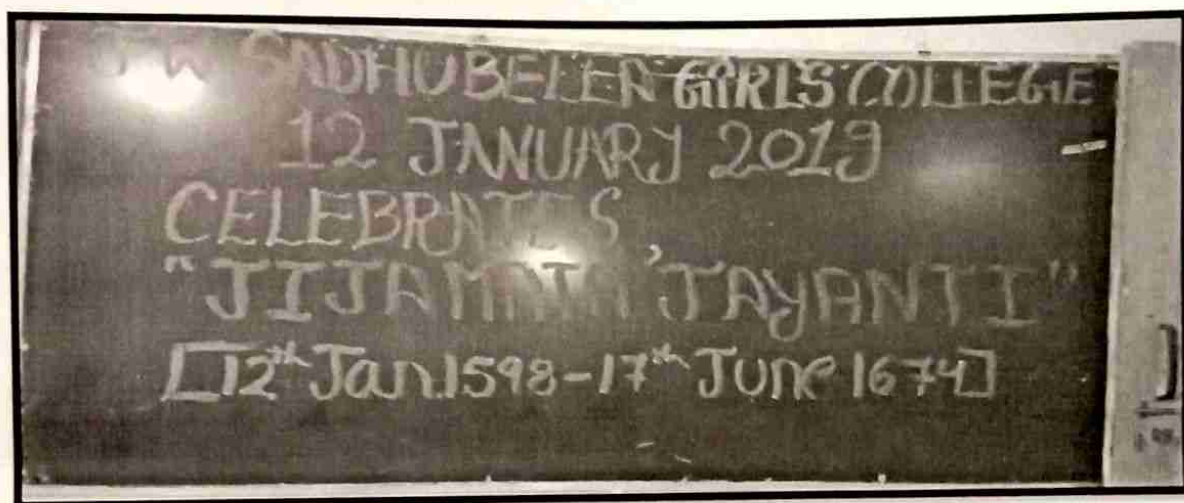 SADHUBELLA GIRLS COLLEGE
12 JANUARY 2019
CELEBRATES,
"JIJAMATA 'JAYANTI"
[12th Jan.1598-17th June 1674]